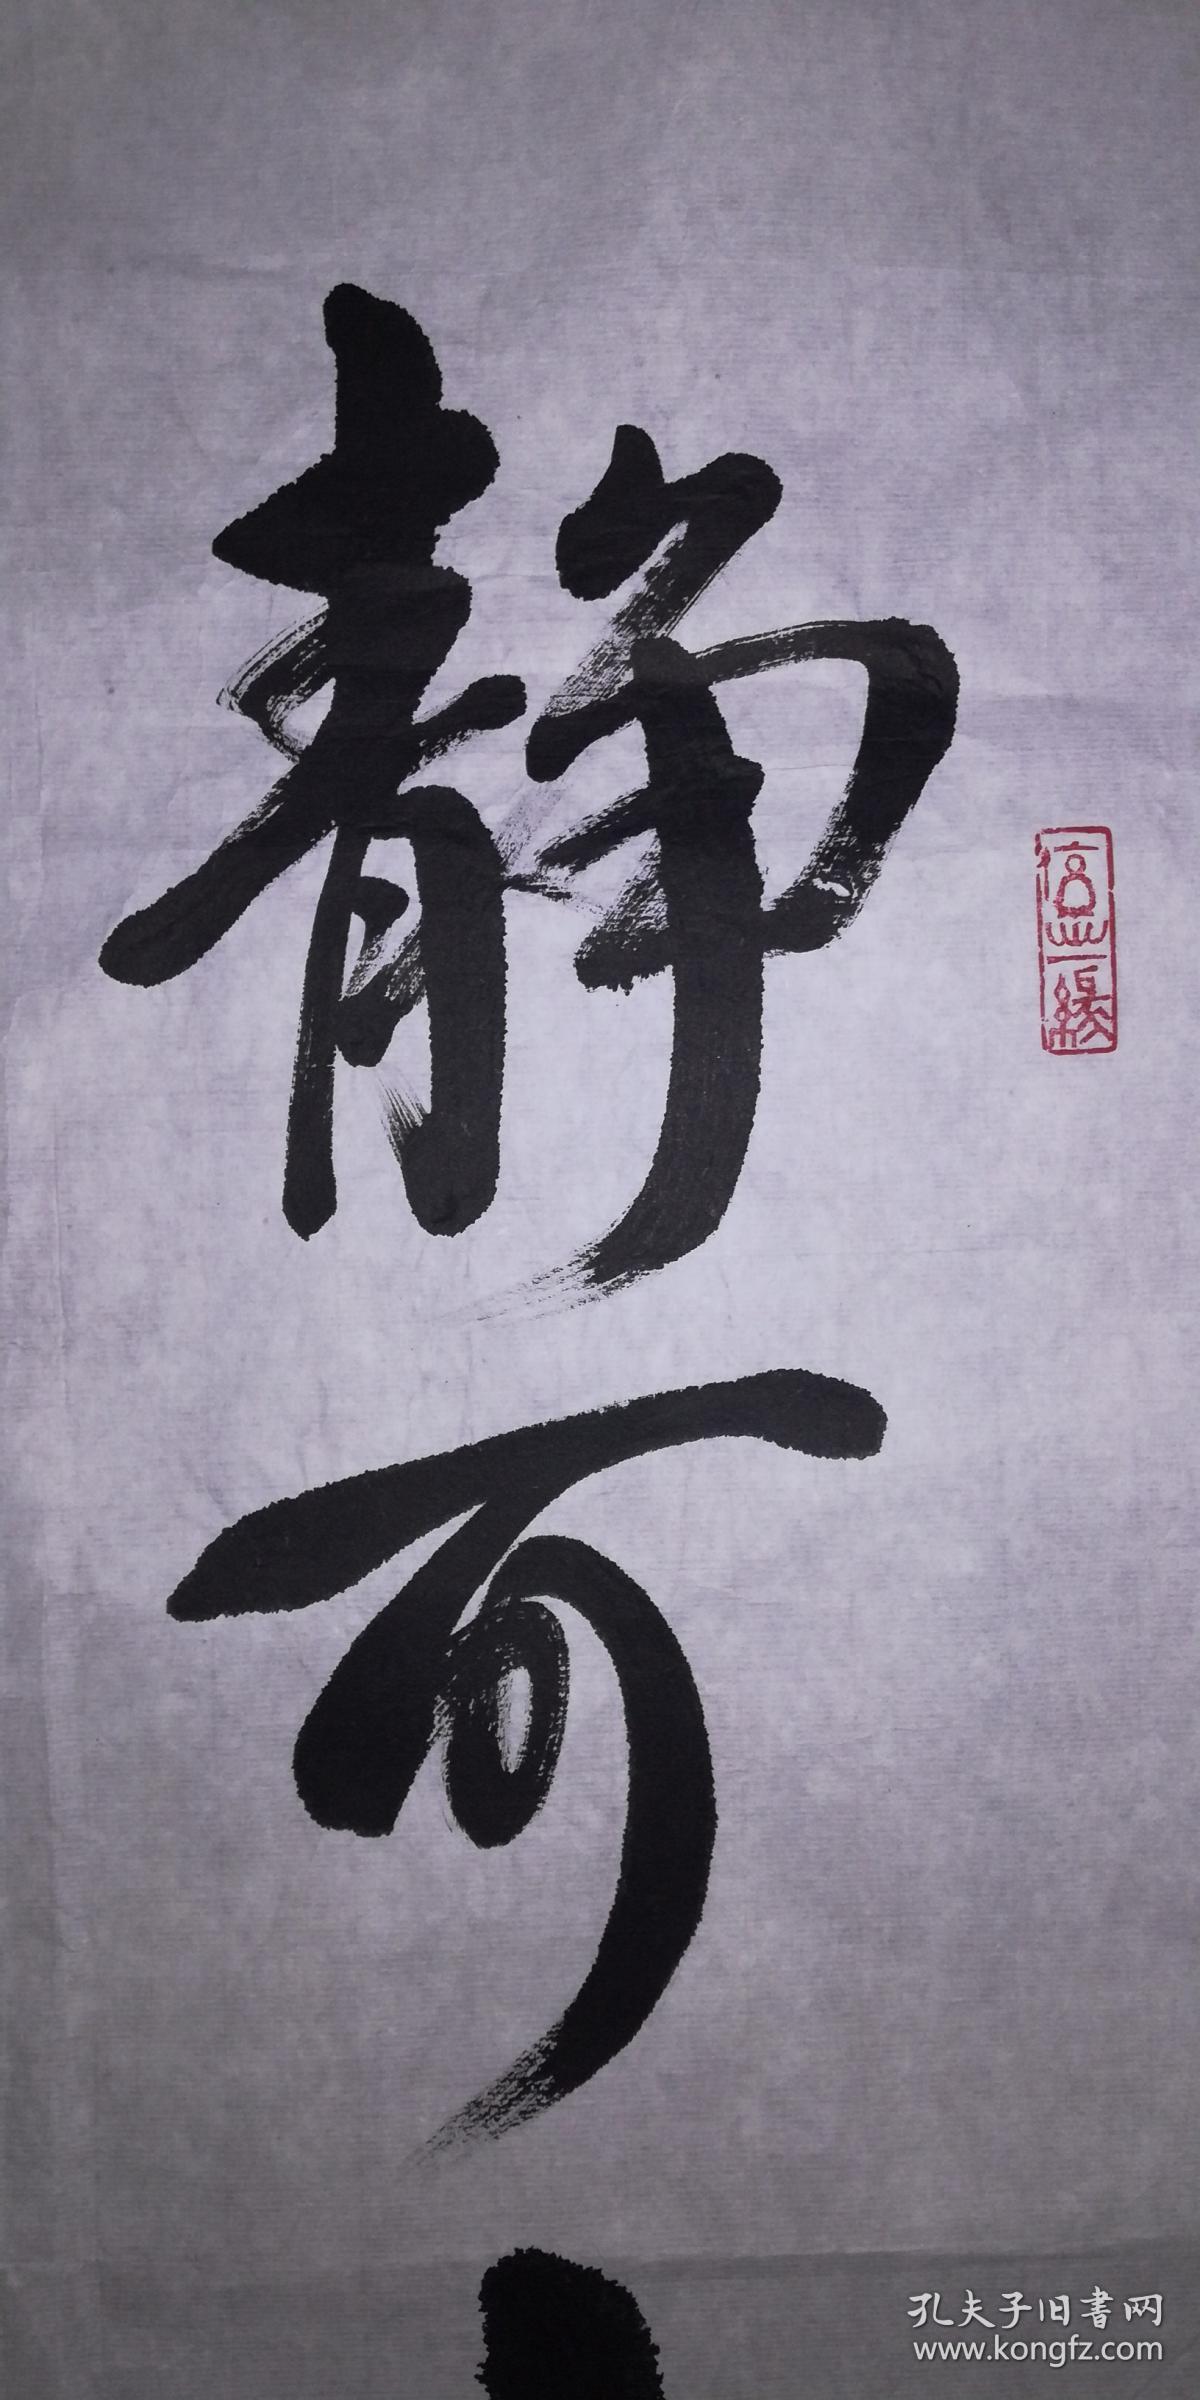 静可
孔夫子旧书网
www.kongfz.com